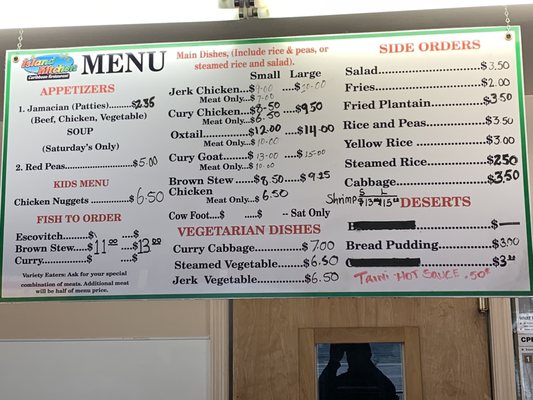 Island Kitchen
Caribbean Restaurant
MENU
APPETIZERS
1. Jamacian (Patties).........$2.85
(Beef, Chicken, Vegetable)
SOUP
(Saturday's Only)
2. Red Peas....................$5.00
KIDS MENU
Chicken Nuggets ............$6.50
FISH TO ORDER
S L
Escovitch............$ ......$
Brown Stew.....$11.00 ....$13.00
Curry..................$ ......$
Variety Eaters: Ask for your special
combination of meats. Additional meat
will be half of menu price.
Main Dishes, (Include rice & peas, or
steamed rice and salad).
Small Large
Jerk Chicken....$9.00 ....$10.00
Meat Only...$7.00
Cury Chicken...$8.50 ....$9.50
Meat Only...$6.50
Oxtail............$12.00 ....$14.00
Meat Only...$10.00
Cury Goat.......$13.00 ....$15.00
Meat Only...$10.00
Brown Stew....$8.50 ....$9.25
Chicken
Meat Only...$6.50
Cow Foot....$ .....$ -- Sat Only
VEGETARIAN DISHES
Curry Cabbage..............$7.00
Steamed Vegetable........$6.50
Jerk Vegetable..............$6.50
SIDE ORDERS
Salad............................$3.50
Fries.............................$2.00
Fried Plantain...............$3.50
Rice and Peas................$3.50
Yellow Rice ..................$3.00
Steamed Rice................$2.50
Cabbage.......................$3.50
S L
Shrimp $13.00 $15.00
DESERTS
B ..............$—
Bread Pudding..............$3.00
..............$3.00
TAINI HOT SAUCE .50¢